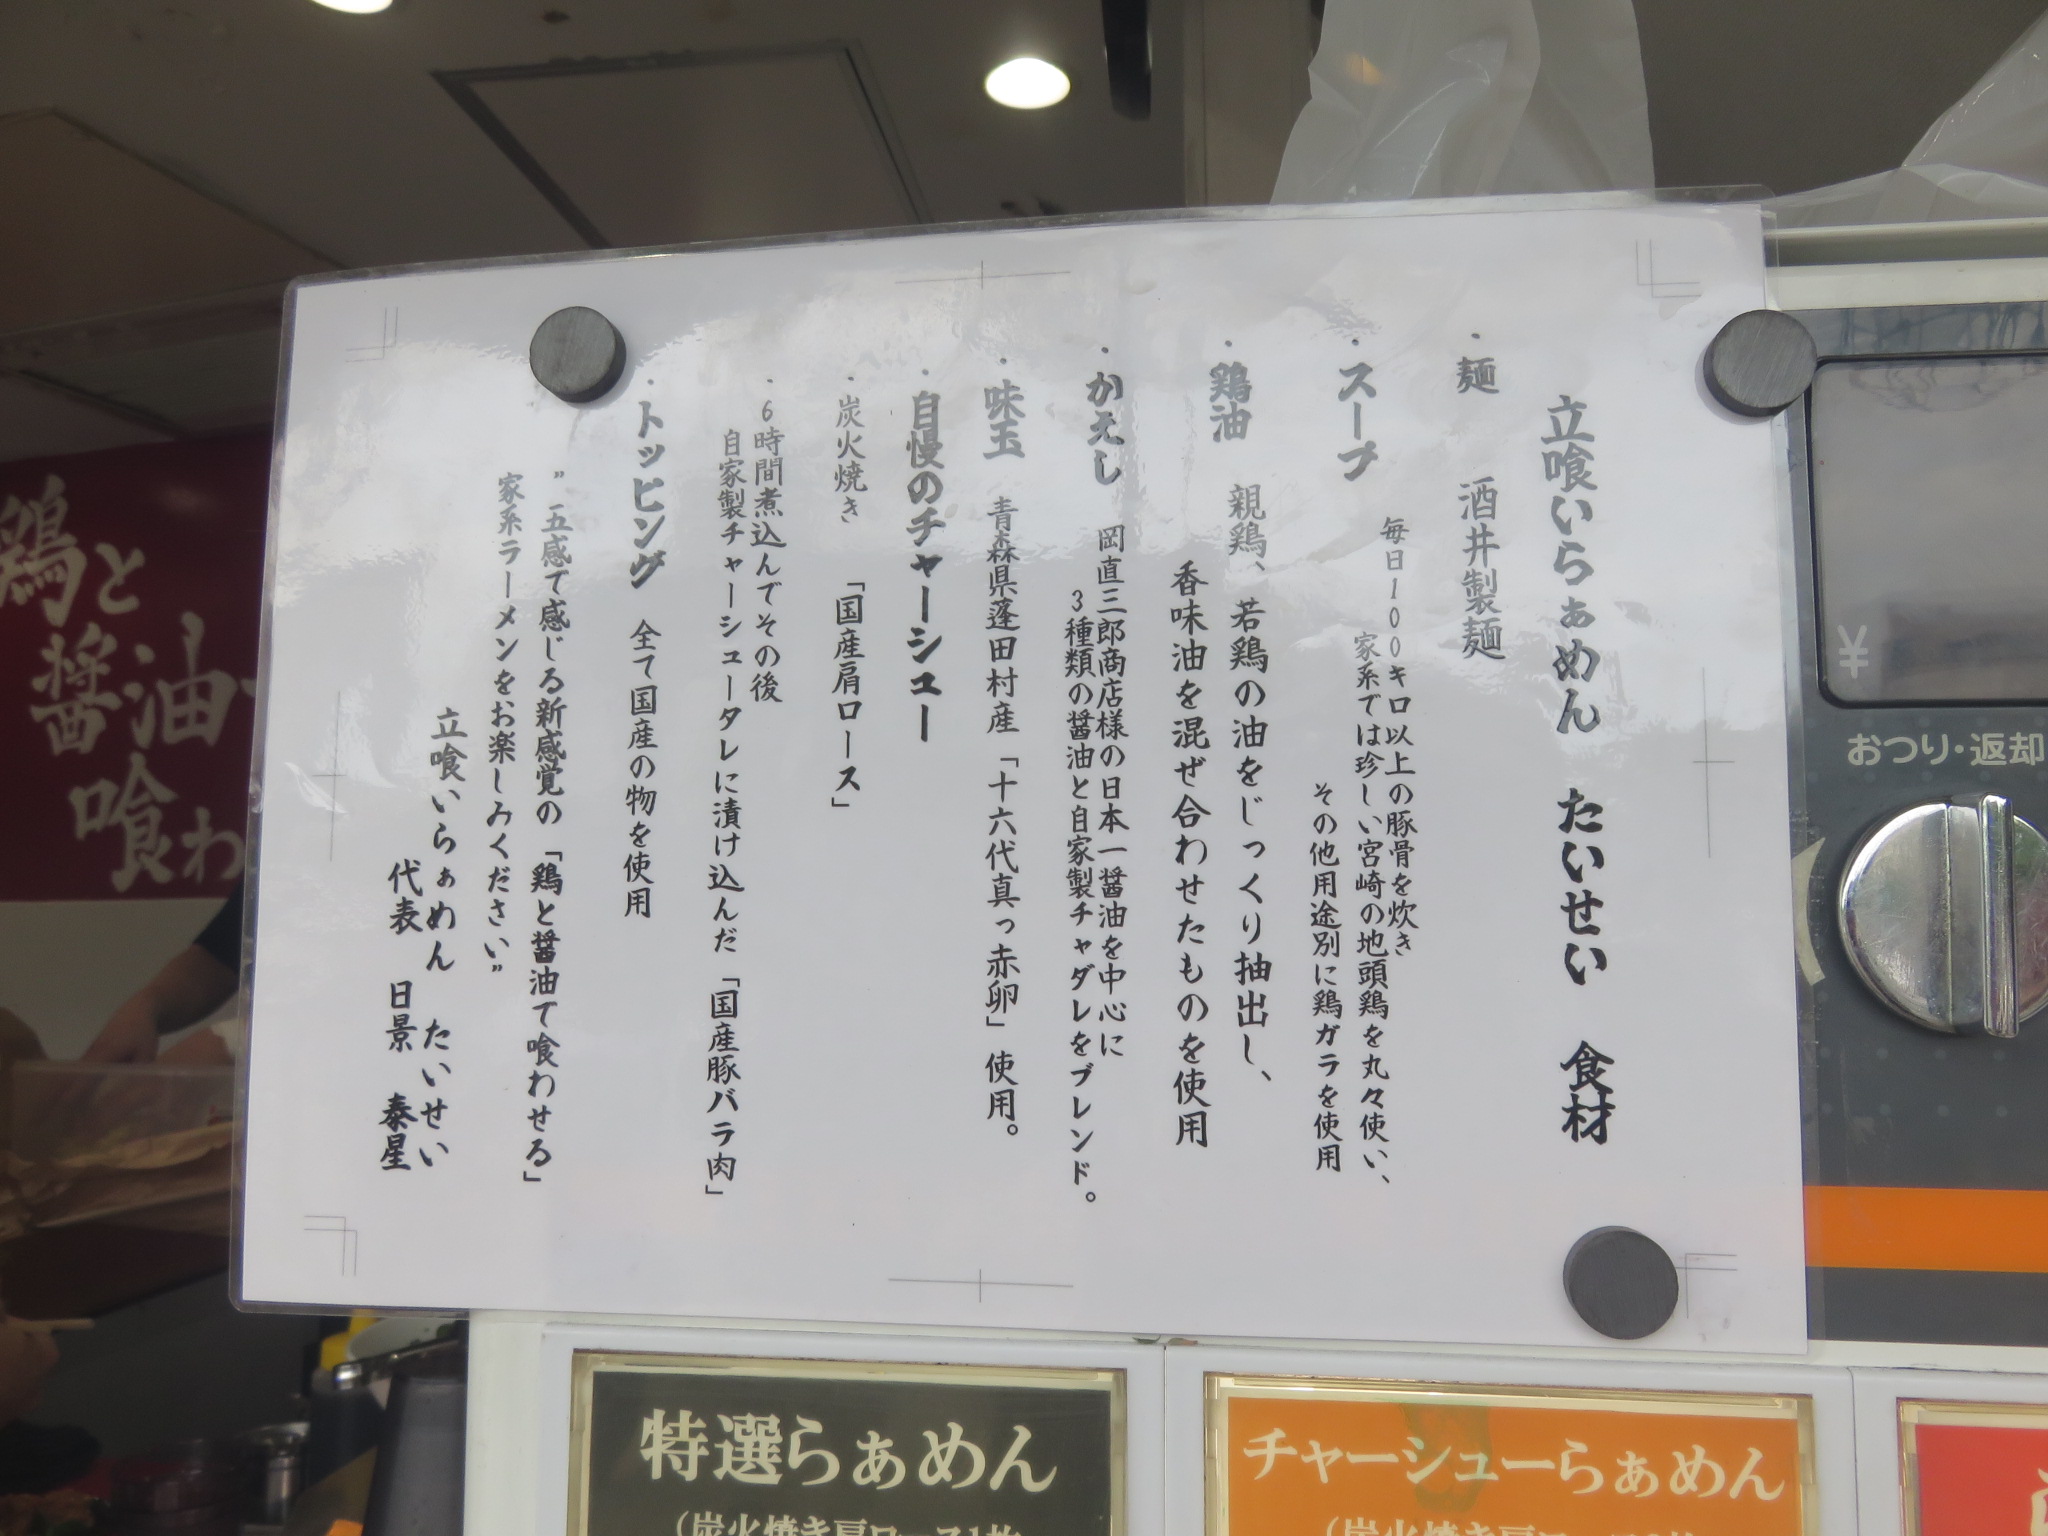 立喰いらぁめん たいせい 食材
・麺 酒井製麺
・スープ 毎日100キロ以上の豚骨を炊き
家系では珍しい宮崎の地頭鶏を丸々使い、
その他用途別に鶏ガラを使用
・鶏油 親鶏、若鶏の油をじっくり抽出し、
香味油を混ぜ合わせたものを使用
・かえし 岡直三郎商店様の日本一醤油を中心に
3種類の醤油と自家製チャダレをブレンド。
・味玉 青森県蓬田村産「十六代真っ赤卵」使用。
・自慢のチャーシュー
・炭火焼き 「国産肩ロース」
・6時間煮込んでその後
自家製チャーシュータレに漬け込んだ「国産豚バラ肉」
・トッピング 全て国産の物を使用
"五感で感じる新感覚の「鶏と醤油で喰わせる」
家系ラーメンをお楽しみください"
立喰いらぁめん たいせい
代表 日景 泰星
鶏と
醤油で
喰わ
¥
おつり・返却
特選らぁめん
(炭火焼き肩ロース1枚
チャーシューらぁめん
(炭火焼き肩ロース